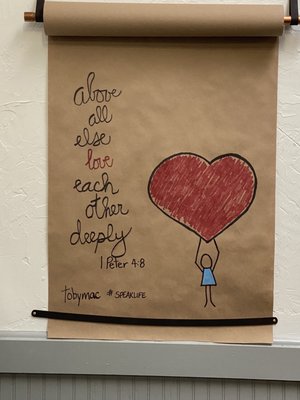 above
all
else
love
each
other
deeply
1 Peter 4:8
tobymac #SPEAKLIFE